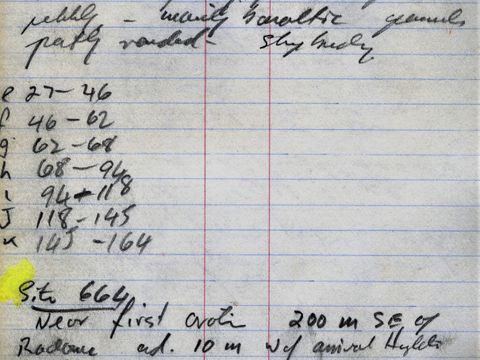 pebbly - mainly basaltic
partly rounded -
e 27-46
f 46-62
g 62-68
h 68-94
i 94-118
J 118-145
K 145-164
Site 664
Near first 200 m SE of
10 m W of